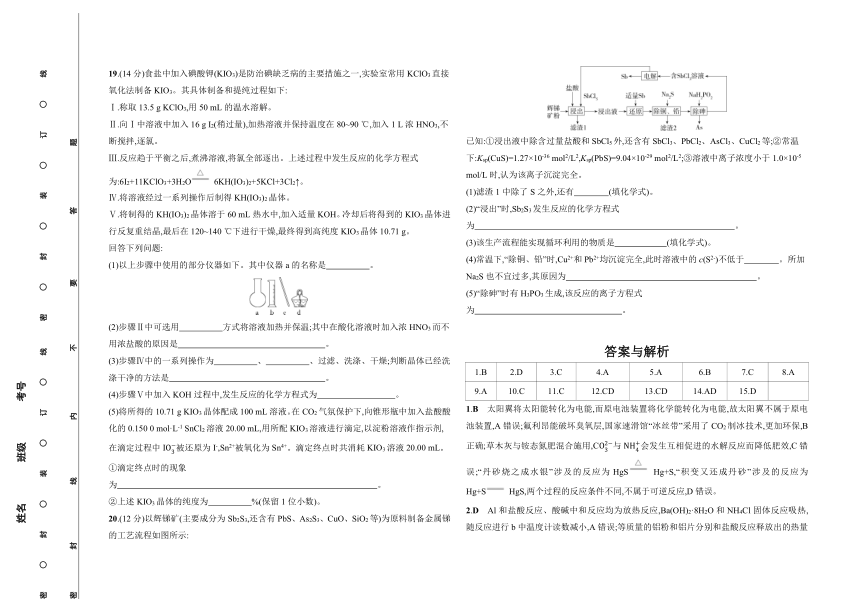 线
〇
订
〇
装
〇
封
〇
密
〇
线
〇
订
〇
装
〇
封
〇
密
考号
班级
姓名
题
答
要
不
内
线
封
密
19.(14分)食盐中加入碘酸钾(KIO3)是防治碘缺乏病的主要措施之一,实验室常用 KClO3 直接
氧化法制备 KIO3。其具体制备和提纯过程如下:
Ⅰ.称取 13.5 g KClO3,用 50 mL 的温水溶解。
Ⅱ.向Ⅰ中溶液中加入 16 g I2(稍过量),加热溶液并保持温度在 80~90 ℃,加入 1 L 浓 HNO3,不
断搅拌,逐氯。
Ⅲ.反应趋于平衡之后,煮沸溶液,将氯全部逐出。上述过程中发生反应的化学方程式
为:6I2+11KClO3+3H2O △ 6KH(IO3)2+5KCl+3Cl2↑。
Ⅳ.将溶液经过一系列操作后制得 KH(IO3)2 晶体。
Ⅴ.将制得的 KH(IO3)2 晶体溶于 60 mL 热水中,加入适量 KOH。冷却后将得到的 KIO3 晶体进
行反复重结晶,最后在 120~140 ℃下进行干燥,最终得到高纯度 KIO3 晶体 10.71 g。
回答下列问题:
(1)以上步骤中使用的部分仪器如下。其中仪器 a 的名称是 。
a b c d
(2)步骤Ⅱ中可选用 方式将溶液加热并保温;其中在酸化溶液时加入浓 HNO3 而不
用浓盐酸的原因是 。
(3)步骤Ⅳ中的一系列操作为 、 、过滤、洗涤、干燥;判断晶体已经洗
涤干净的方法是 。
(4)步骤Ⅴ中加入 KOH 过程中,发生反应的化学方程式为 。
(5)将所得的 10.71 g KIO3 晶体配成 100 mL 溶液。在 CO2 气氛保护下,向锥形瓶中加入盐酸酸
化的 0.150 0 mol·L-1 SnCl2 溶液 20.00 mL,用所配 KIO3 溶液进行滴定,以淀粉溶液作指示剂,
在滴定过程中 IO3-被还原为 I-,Sn2+被氧化为 Sn4+。滴定终点时共消耗 KIO3 溶液 20.00 mL。
①滴定终点时的现象
为 。
②上述 KIO3 晶体的纯度为 %(保留 1 位小数)。
20.(12 分)以辉锑矿(主要成分为 Sb2S3,还含有 PbS、As2S3、CuO、SiO2 等)为原料制备金属锑
的工艺流程如图所示:
Sb 电解 含SbCl3溶液
盐酸 SbCl5 适量Sb Na2S NaH2PO2
辉锑矿粉 浸出 浸出液 还原 除铜、铅 除砷
滤渣1 滤渣2 As
已知:①浸出液中除含过量盐酸和 SbCl5 外,还含有 SbCl3、PbCl2、AsCl3、CuCl2 等;②常温
下:Ksp(CuS)=1.27×10-36 mol2/L2,Ksp(PbS)=9.04×10-29 mol2/L2;③溶液中离子浓度小于 1.0×10-5
mol/L 时,认为该离子沉淀完全。
(1)滤渣 1 中除了 S 之外,还有 (填化学式)。
(2)“浸出”时,Sb2S3 发生反应的化学方程式
为 。
(3)该生产流程能实现循环利用的物质是 (填化学式)。
(4)常温下,“除铜、铅”时,Cu2+和 Pb2+均沉淀完全,此时溶液中的 c(S2-)不低于 。所加
Na2S 也不宜过多,其原因为 。
(5)“除砷”时有 H3PO3 生成,该反应的离子方程式
为 。
答案与解析
1.B 2.D 3.C 4.A 5.A 6.B 7.C 8.A
9.A 10.C 11.C 12.CD 13.CD 14.AD 15.D
1.B 太阳翼将太阳能转化为电能,而原电池装置将化学能转化为电能,故太阳翼不属于原电
池装置,A 错误;氟利昂能破坏臭氧层,国家速滑馆“冰丝带”采用了 CO2 制冰技术,更加环保,B
正确;草木灰与铵态氮肥混合施用,CO32-与 NH4+会发生互相促进的水解反应而降低肥效,C 错
误;“丹砂烧之成水银”涉及的反应为 HgS △ Hg+S,“积变又还成丹砂”涉及的反应为
Hg+S HgS,两个过程的反应条件不同,不属于可逆反应,D 错误。
2.D Al 和盐酸反应、酸碱中和反应均为放热反应,Ba(OH)2·8H2O 和 NH4Cl 固体反应吸热,
随反应进行 b 中温度计读数减小,A 错误;等质量的铝粉和铝片分别和盐酸反应释放出的热量